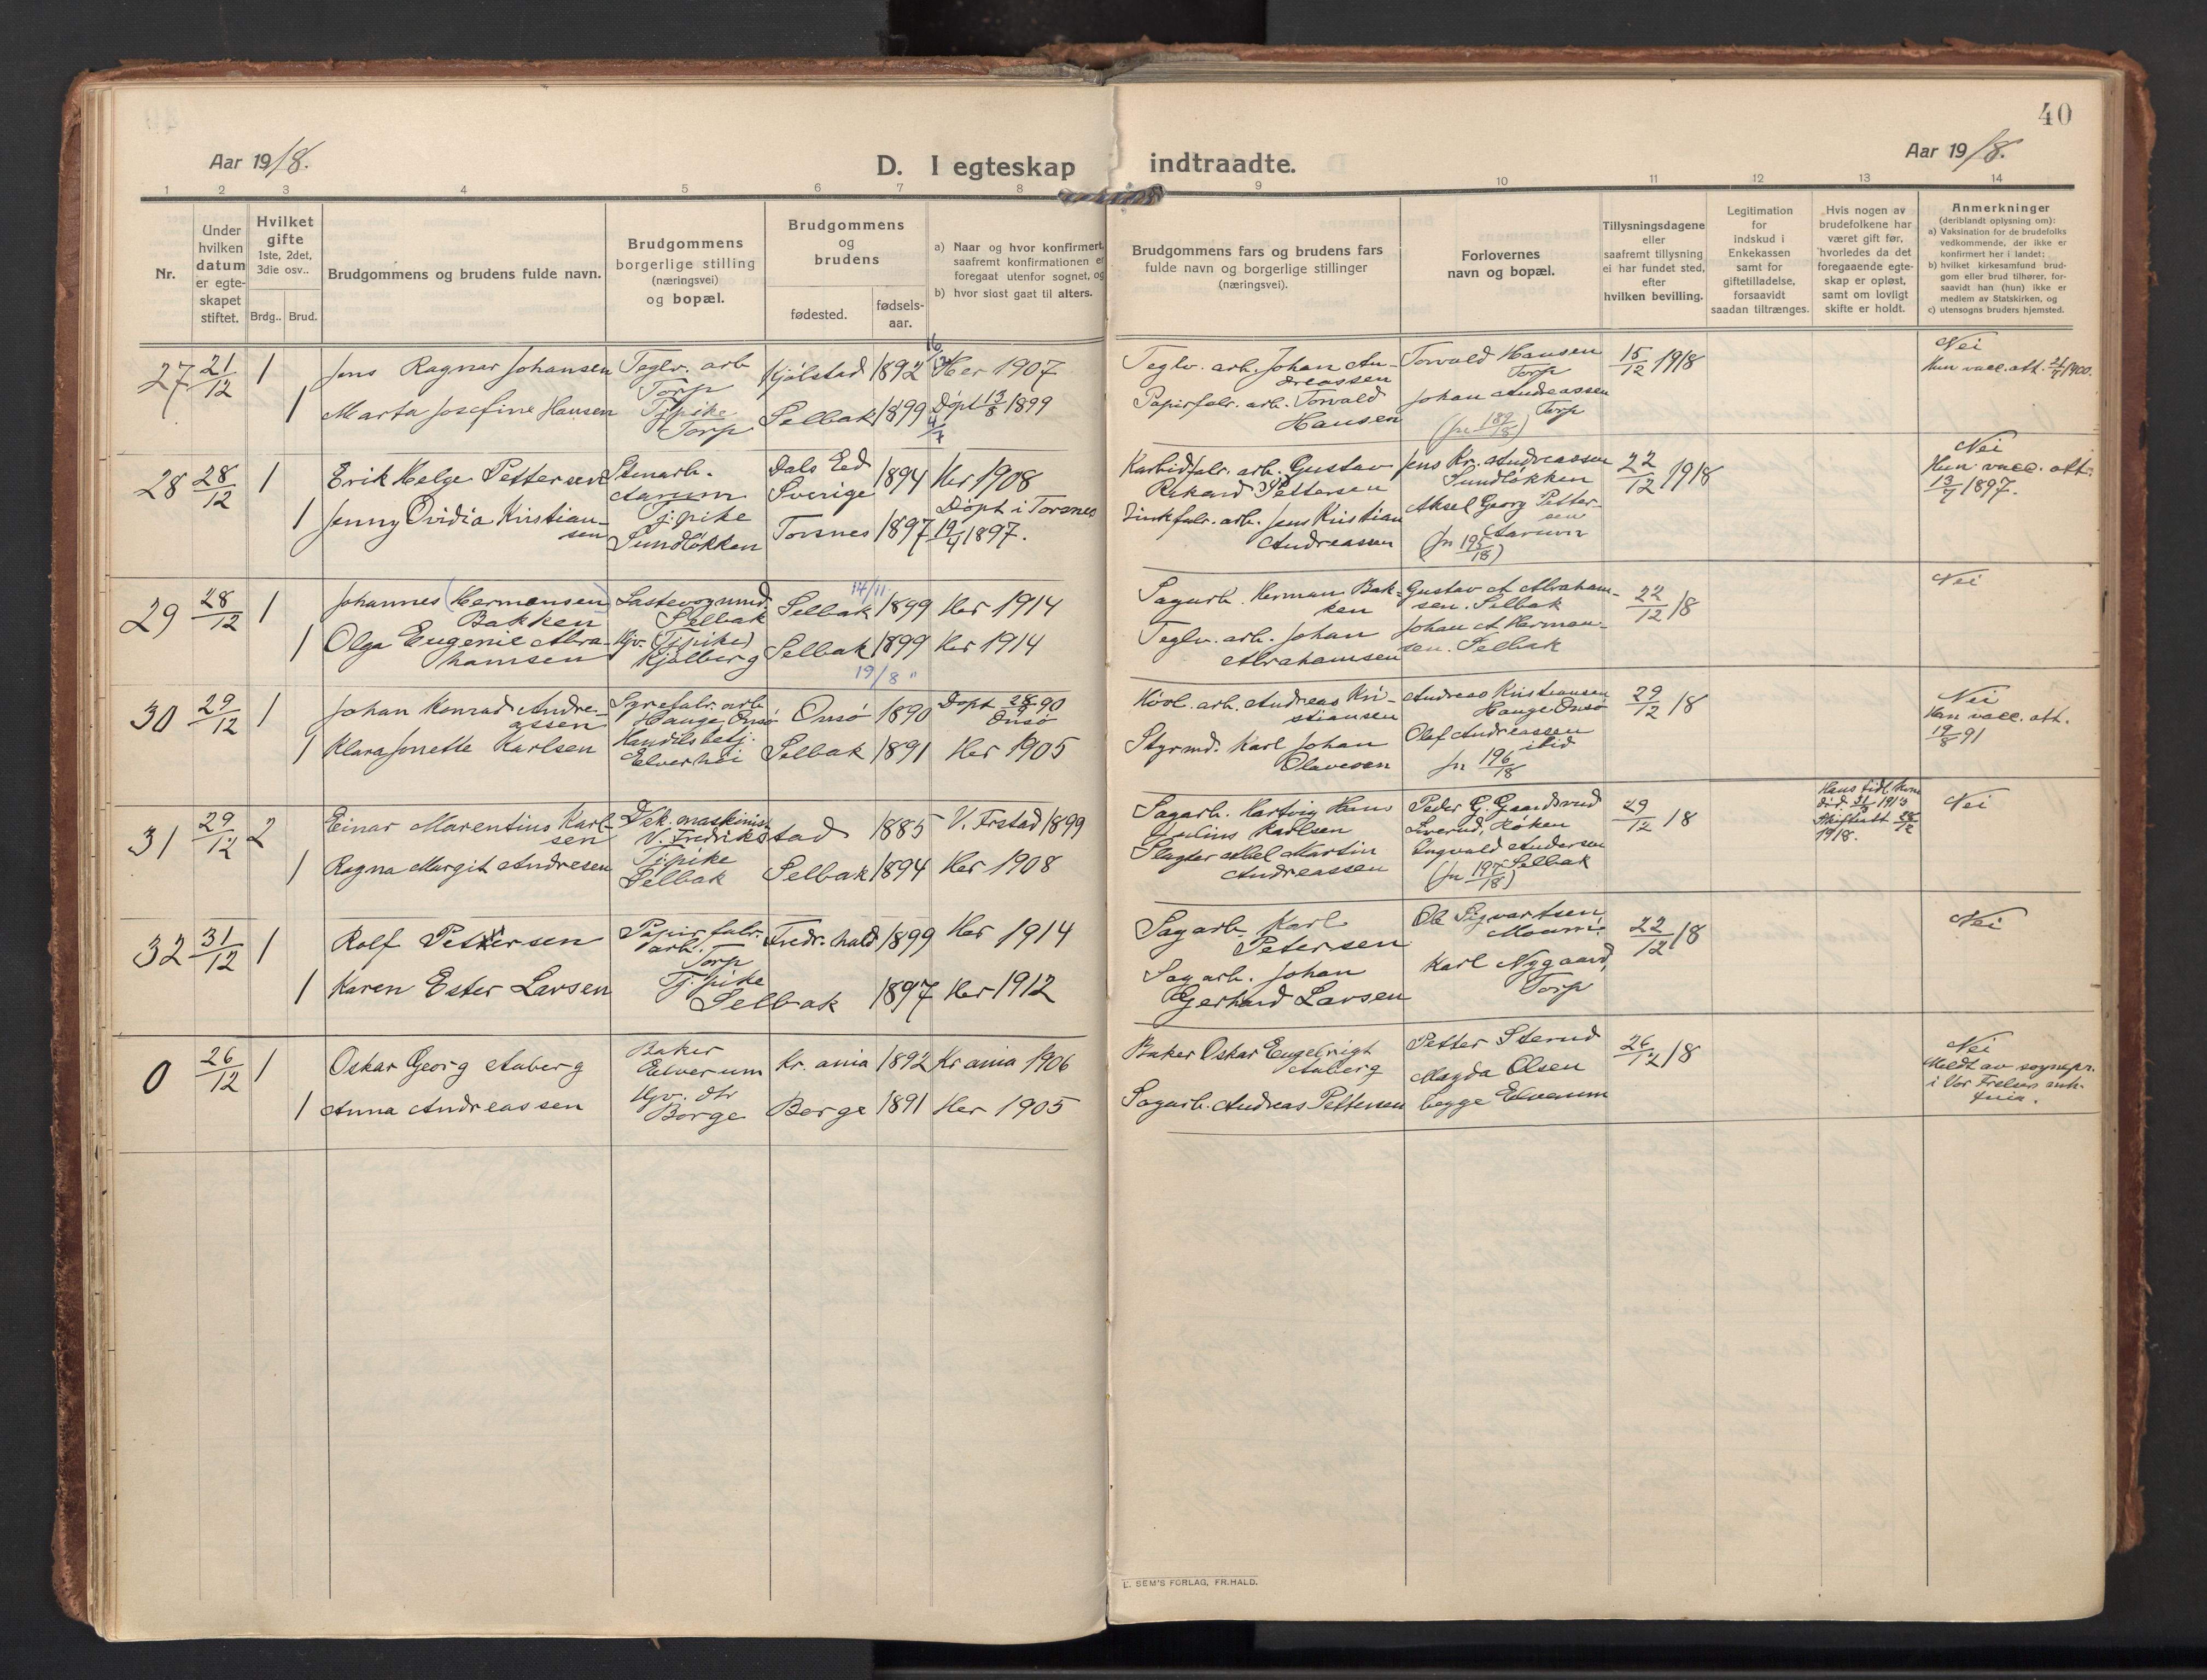 40
Aar 1918.
D. I egteskap indtraadte.
Aar 1918.
1 2 3 4 5 6 7 8 9 10 11 12 13 14
Nr.
Under
hvilken
datum
er egte-
skapet
stiftet.
Hvilket
gifte
1ste, 2det,
3die osv..
Brdg.. Brud.
Brudgommens og brudens fulde navn.
Brudgommens
borgerlige stilling
(næringsvei)
og bopæl.
Brudgommens
og
brudens
fødested.
fødsels-
aar.
a) Naar og hvor konfirmert,
saafremt konfirmationen er
foregaat utenfor sognet, og
b) hvor sidst gaat til alters.
Brudgommens fars og brudens fars
fulde navn og borgerlige stillinger
(næringsvei).
Forlovernes
navn og bopæl.
Tillysningsdagene
eller
saafremt tillysning
ei har fundet sted,
efter
hvilken bevilling.
Legitimation
for
indskud i
Enkekassen
samt for
giftetilladelse,
forsaavidt
saadan tiltrænges.
Hvis nogen av
brudefolkene har
været gift før,
hvorledes da det
foregaaende egte-
skap er opløst,
samt om lovligt
skifte er holdt.
Anmerkninger
(deriblandt oplysning om):
a) Vaksination for de brudefolks
vedkommende, der ikke er
konfirmert her i landet;
b) hvilket kirkesamfund brud-
gom eller brud tilhører, for-
saavidt han (hun) ikke er
medlem av Statskirken, og
c) utensogns bruders hjemsted.
27 21/12 1 Jens Ragnar Johansen
Teglv. arb
Torp
Kjølstad 1892 Her 1907
Teglv. arb. Johan An-
dreassen
Torvald Hansen
Torp
15/12 1918
Nei
Hun vacc. att. 21/7 1900.
1 Marta Josefine Hansen
Tj.pike
Torp
Selbak 1899 Døpt 13/8 1899
4/7
Papirfabr. arb. Torvald
Hansen
Johan Andreassen
Torp
(jn 189/18)
28 28/12 1 Erik Helge Pettersen
Stenarb.
Aarum
Dals Eed
Sverige
1894 Her 1908
Karbidfabr. arb. Gustav
Rikard Pettersen
Jens Kr. Andreassen
Sundløkken
22/12 1918
Nei
Hun vacc. att.
13/7 1897.
1 Jenny Ovidia Kristian-
sen
Tj.pike
Sundløkken
Torsnes 1897
Døpt i Torsnes
19/4 1897.
Zinkfabr. arb. Jens Kristian
Andreassen
Aksel Georg Petter-
sen
Aarum
(jn 195/18)
29 28/12 1 Johannes (Hermansen)
Bakken
Lastevognmd.
Selbak
Selbak 14/11 1899 Her 1914
Sagarb. Herman Bak-
ken
Gustav A Abraham-
sen. Selbak
22/12 18
Nei
1 Olga Eugenie Abra-
hamsen
Hjv. (Tj.pike)
Kjølberg
Selbak 1899 Her 1914
19/8 "
Teglv. arb. Johan
Abrahamsen
Johan A Herman-
sen. Selbak
30 29/12 1 Johan Konrad Andre-
assen
Syrefabr. arb
Hauge, Onsø
Onsø 1890 Døpt 28/9 90
Onsø
Høvl. arb. Andreas Kri-
stiansen
Andreas Kristiansen
Hauge Onsø
29/12 18
Nei
Han vacc. att.
19/8 91
1 Klara Jonette Karlsen
Handelsbetj.
Elverhøi
Selbak 1891 Her 1905
Styrmd. Karl Johan
Olavesen
Olaf Andreassen
ibid
jn 196/18
31 29/12 2 Einar Marentius Karl-
sen
Dek. maskinist
V. Fredrikstad 1885 V. Frstad 1899
Sagarb. Hartvig Hans
Julius Karlsen
Peder G. Gaardsrud
Liverud, Røken
29/12 18
Hans tidl. kone
død 31/3 1913
Skifteatt 28/12
1918.
Nei
1 Ragna Margit Andresen
Tj.pike
Selbak
Selbak 1894 Her 1908
Slagter Abel Martin
Andreassen
Ingvald Andersen
Selbak
(jn 197/18)
32 31/12 1 Rolf Petersen
Papirfabr.
arb. Torp
Fredr.hald 1899 Her 1914
Sagarb. Karl
Petersen
Ole Sigvartsen,
Moum.
22/12 18
Nei
1 Karen Ester Larsen
Tj.pike
Selbak 1897 Her 1912
Sagarb. Johan
Gerhard Larsen
Karl Nygaard,
Torp
0 26/12 1 Oskar Georg Auberg
Baker
Elverum
Kr.ania 1892 Kr.ania 1906
Baker Oskar Engelrigt
Auberg
Petter Sterud
26/12 18
Nei
Meldt av sognepr.
i Vor Frelsers
1 Anna Andreassen
Hjv. dtr
Borge
Borge 1891 Her 1905
Sagarb. Andreas Pettersen
Magda Olsen
begge Elverum
E. SEM'S FORLAG, FR.HALD.